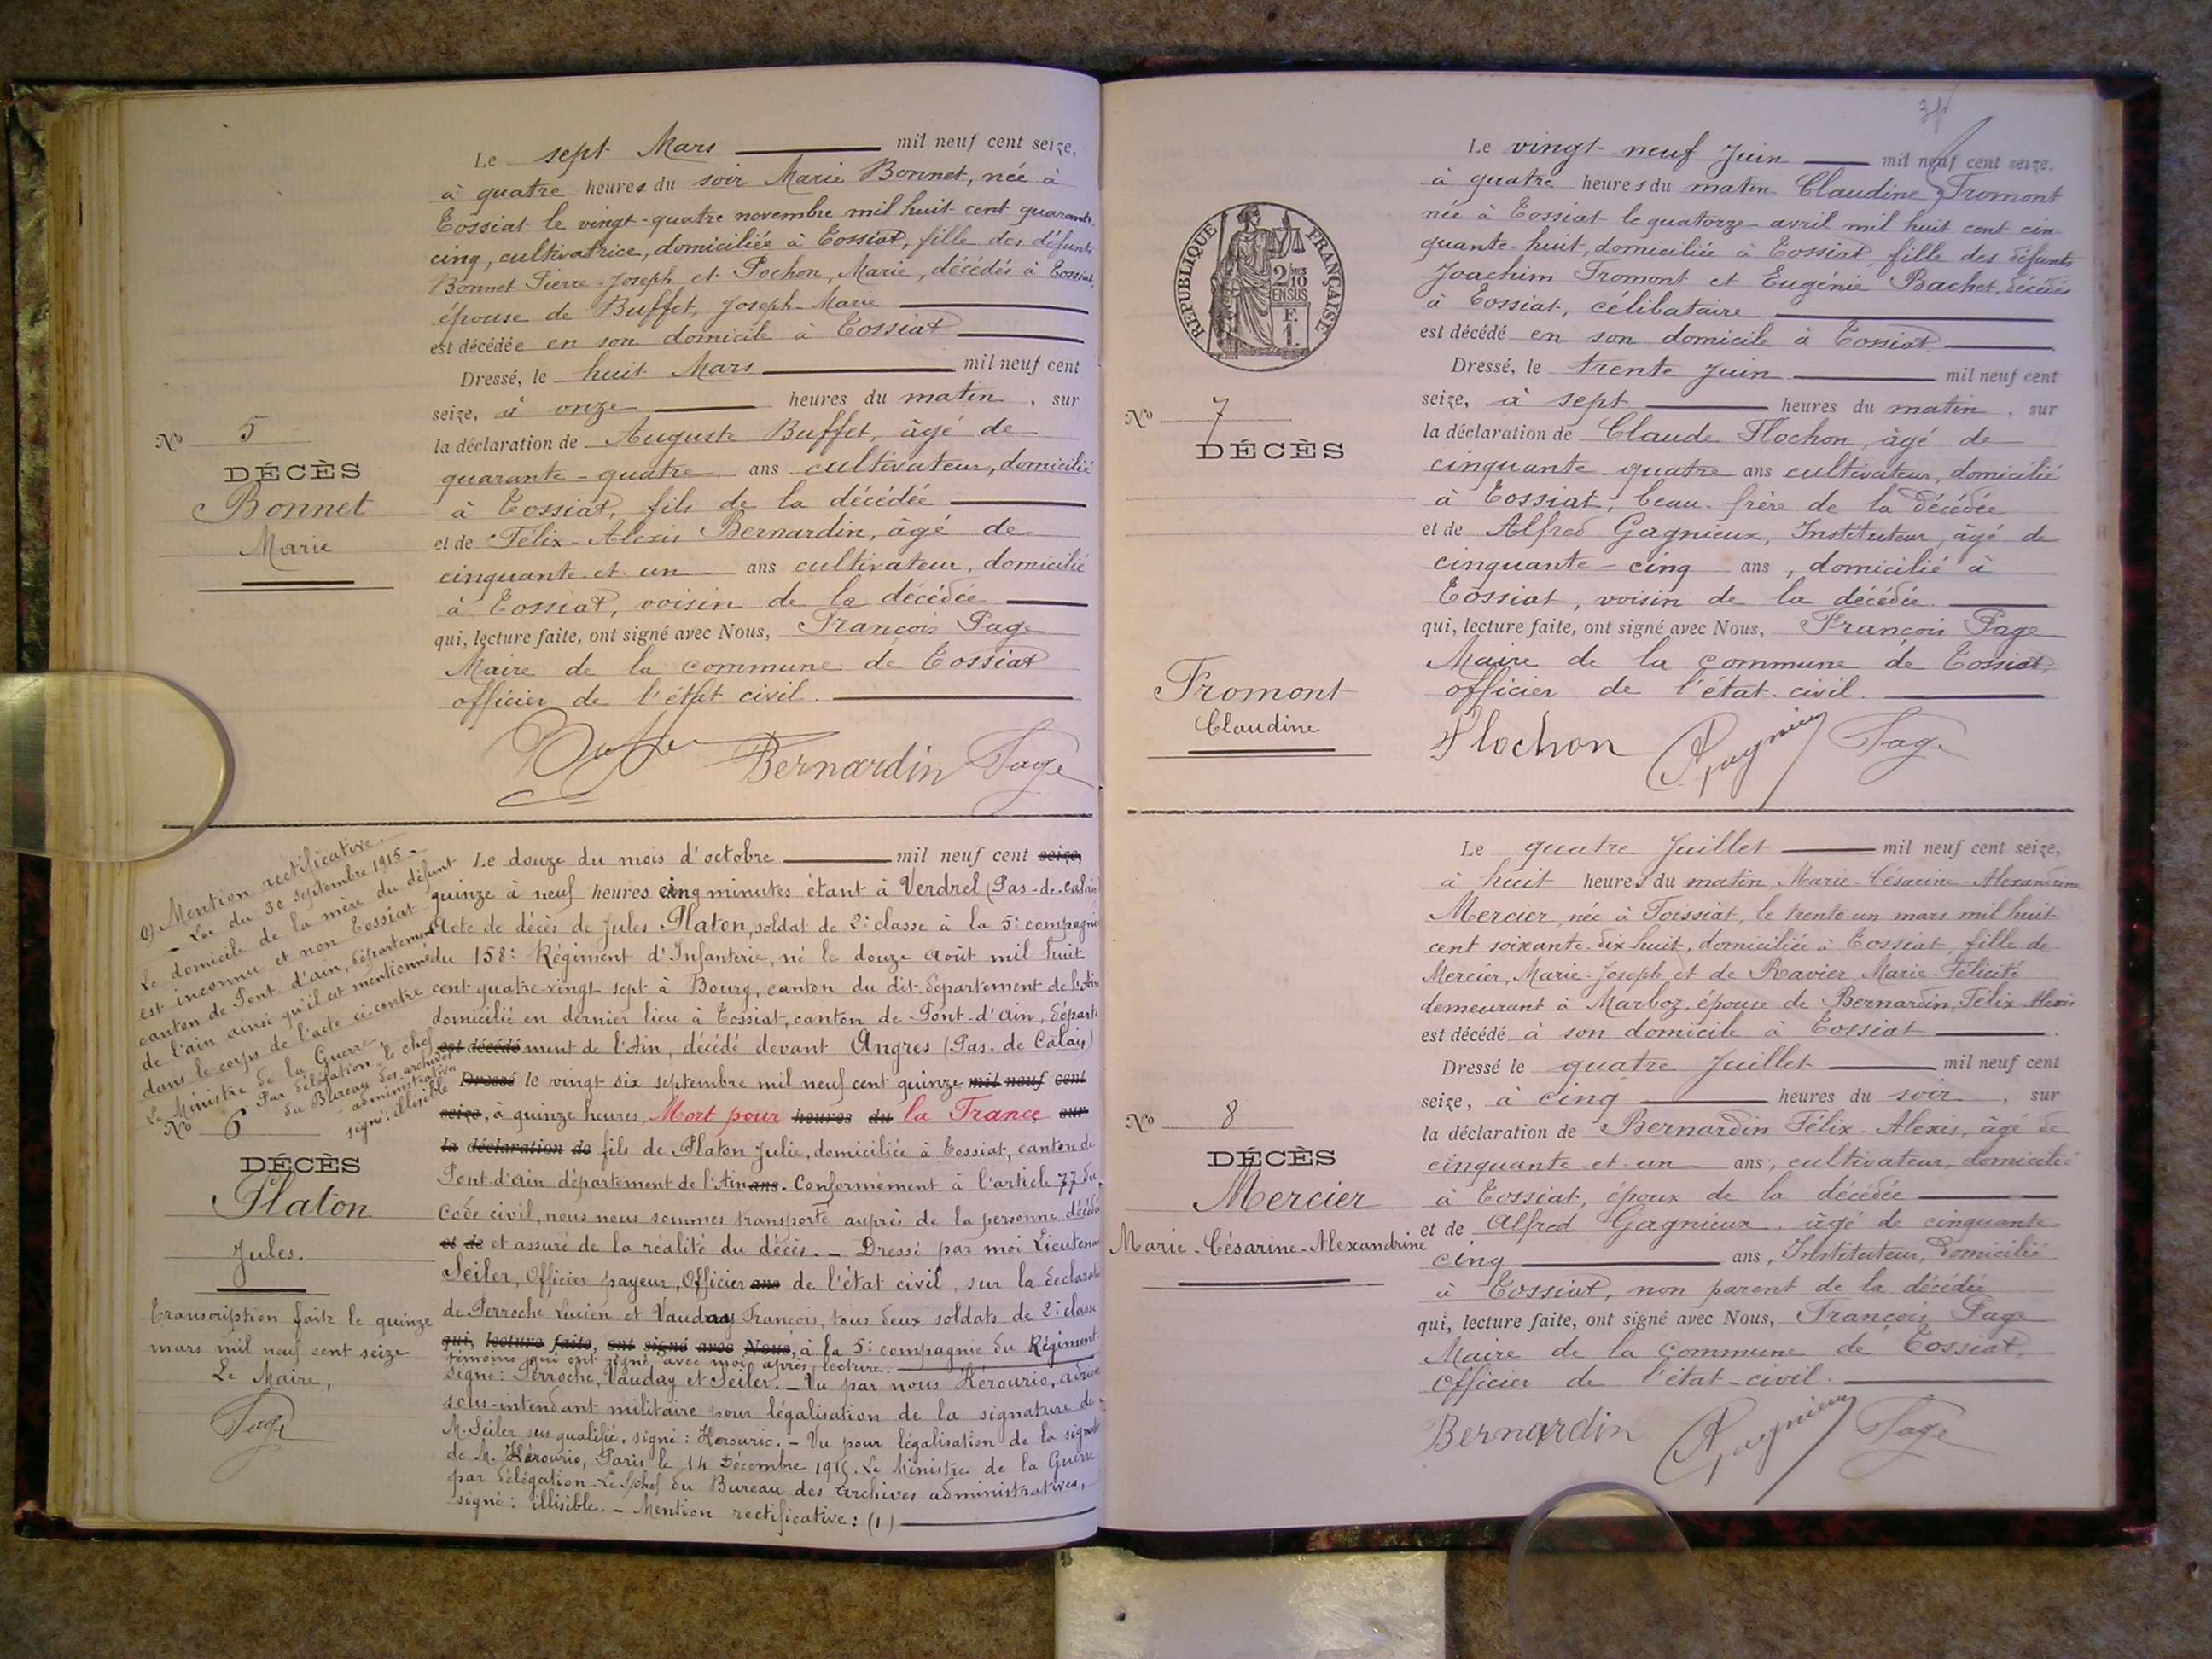 Le sept Mars mil neuf cent seize,
à quatre heures du soir Marie Bonnet, née à
Tossiat le vingt-quatre novembre mil huit cent quarante-
cinq, cultivatrice, domiciliée à Tossiat, fille des défunts
Bonnet Pierre-Joseph et Pochon, Marie, décédés à Tossiat,
épouse de Buffet, Joseph-Marie
est décédée en son domicile à Tossiat
Dressé, le huit Mars mil neuf cent
seize, à onze heures du matin, sur
la déclaration de Auguste Buffet, âgé de
quarante-quatre ans cultivateur, domicilié
à Tossiat, fils de la décédée
et de Félix-Alexis Bernardin, âgé de
cinquante et un ans cultivateur, domicilié
à Tossiat, voisin de la décédée
qui, lecture faite, ont signé avec Nous, François Page
Maire de la commune de Tossiat
officier de l'état civil.
Bernardin Page
No 5
DÉCÈS
Bonnet
Marie
(1) Mention rectificative.
- Loi du 30 septembre 1915 -
Le domicile de la mère du défunt
est inconnu et non Tossiat
canton de Pont-d'ain, département
de l'ain ainsi qu'il est mentionné
dans le corps de l'acte ci-contre
Le Ministre de la Guerre
Par délégation, le chef
du Bureau des archives
administratives
signé: illisible
No 6
DÉCÈS
Platon
Jules.
Transcription faite le quinze
mars mil neuf cent seize
Le Maire,
Page
Le douze du mois d'octobre mil neuf cent seize,
quinze à neuf heures cinq minutes étant à Verdrel (Pas-de-Calais)
Acte de décès de Jules Platon, soldat de 2e classe à la 5e compagnie
du 158e Régiment d'Infanterie, né le douze août mil huit
cent quatre-vingt sept à Bourg, canton du dit département de l'Ain
domicilié en dernier lieu à Tossiat, canton de Pont-d'Ain, départe
est décédé ment de l'Ain, décédé devant Angres (Pas-de Calais)
Dressé le vingt six septembre mil neuf cent quinze mil neuf cent
seize, à quinze heures, Mort pour heures du la France sur
la déclaration de fils de Platon Julie, domiciliée à Tossiat, canton de
Pont-d'ain département de l'Ain ans. Conformément à l'article 77 du
Code civil, nous nous sommes transporté auprès de la personne décédée
et de et assuré de la réalité du décès. - Dressé par moi Lieutenant
Seiler, Officier payeur, Officier ans de l'état civil, sur la déclarat
de Perroche Lucien et Vauday François, tous deux soldats de 2e classe
qui, lecture faite, ont signé avec Nous, à la 5e compagnie du Régiment
témoins qui ont signé avec moi après lecture.
signé: Perroche, Vauday et Seiler. - Vu par nous Hérourio, Adrien
sous-intendant militaire pour légalisation de la signature de
M. Seiler sus qualifié, signé: Hérourio. - Vu pour légalisation de la signat
de M. Hérourio, Paris le 14 Décembre 1915. Le Ministre de la Guerre
par délégation Le S/chef du Bureau des Archives administratives,
signé: illisible. - Mention rectificative: (1)
RÉPUBLIQUE FRANÇAISE
2/10
EN SUS
F.
1.
No 7
DÉCÈS
Fromont
Claudine
Le vingt-neuf Juin mil neuf cent seize.
à quatre heures du matin Claudine Fromont
née à Tossiat le quatorze avril mil huit cent cin-
quante-huit, domiciliée à Tossiat, fille des défunts
Joachim Fromont et Eugénie Bachet, décédés
à Tossiat, célibataire
est décédé en son domicile à Tossiat
Dressé, le trente Juin mil neuf cent
seize, à sept heures du matin, sur
la déclaration de Claude Flochon, âgé de
cinquante-quatre ans cultivateur, domicilié
à Tossiat, beau-frère de la décédée
et de Alfred Gagnieux, Instituteur, âgé de
cinquante-cinq ans, domicilié à
Tossiat, voisin de la décédée.
qui, lecture faite, ont signé avec Nous, François Page
Maire de la commune de Tossiat,
officier de l'état-civil.
Flochon Gagnieux Page
No 8
DÉCÈS
Mercier
Marie-Césarine-Alexandrine
Le quatre Juillet mil neuf cent seize.
à huit heures du matin, Marie-Césarine-Alexandrine
Mercier, née à Foissiat, le trente-un mars mil huit
cent soixante-dix huit, domiciliée à Tossiat, fille de
Mercier, Marie-Joseph, et de Ravier, Marie-Félicité
demeurant à Marboz, épouse de Bernardin, Félix-Alexis
est décédé à son domicile à Tossiat.
Dressé le quatre Juillet mil neuf cent
seize, à cinq heures du soir, sur
la déclaration de Bernardin Félix-Alexis, âgé de
cinquante et un ans, cultivateur, domicilié
à Tossiat, époux de la décédée
et de Alfred Gagnieux, âgé de cinquante-
cinq ans, Instituteur, domicilié
à Tossiat, non parent de la décédée
qui, lecture faite, ont signé avec Nous, François Page
Maire de la Commune de Tossiat,
Officier de l'état-civil.
Bernardin Gagnieux Page